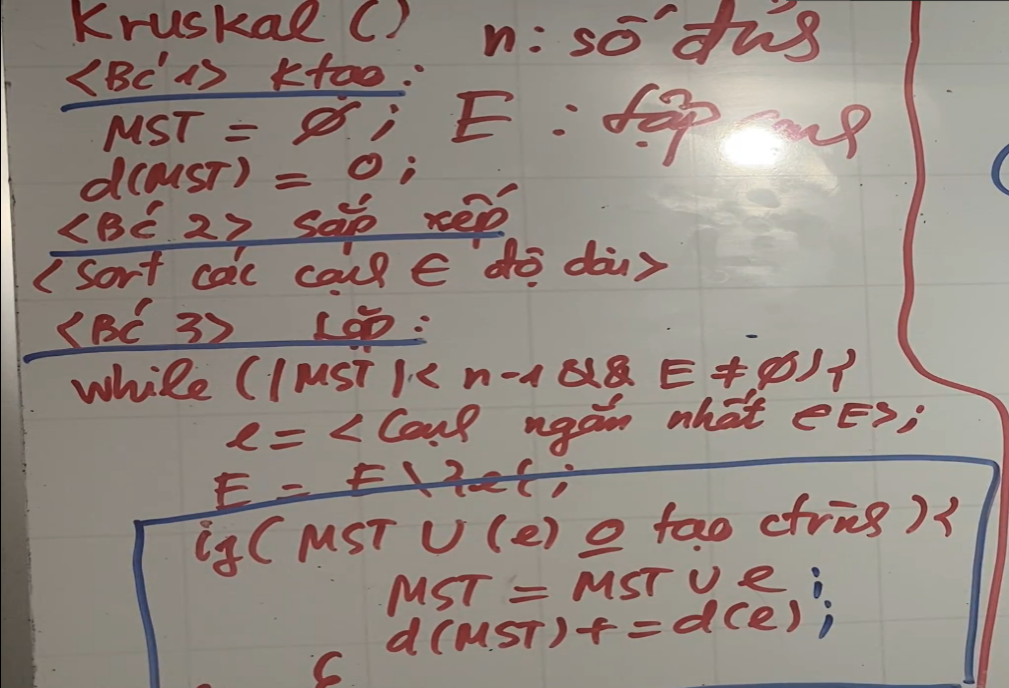 Kruskal () n: số đỉnh
<Bć 1> Ktạo:
MST = ∅; E: tập cạnh
d(MST) = 0;
<Bć 2> sắp xếp
<Sort các cạnh ∈ độ dài>
<Bć 3> Lặp:
while (|MST|< n-1 && E ≠ ∅) {
e = <Cạnh ngắn nhất ∈ E>;
E = E \ {e};
if( MST ∪ (e) o tạo ctrình ) {
MST = MST ∪ e ;
d(MST)+=d(e);